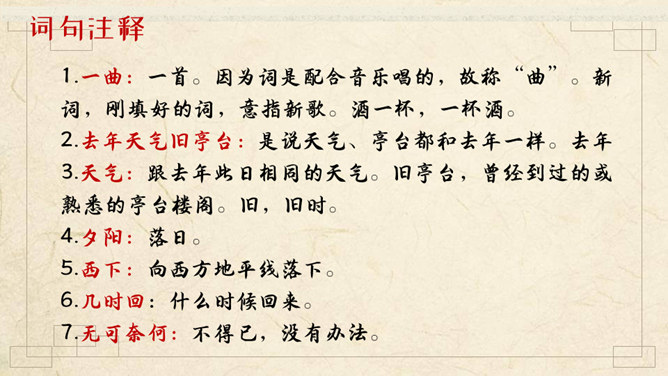 词句注释
1.一曲：一首。因为词是配合音乐唱的，故称“曲”。新
词，刚填好的词，意指新歌。酒一杯，一杯酒。
2.去年天气旧亭台：是说天气、亭台都和去年一样。去年
3.天气：跟去年此日相同的天气。旧亭台，曾经到过的或
熟悉的亭台楼阁。旧，旧时。
4.夕阳：落日。
5.西下：向西方地平线落下。
6.几时回：什么时候回来。
7.无可奈何：不得已，没有办法。